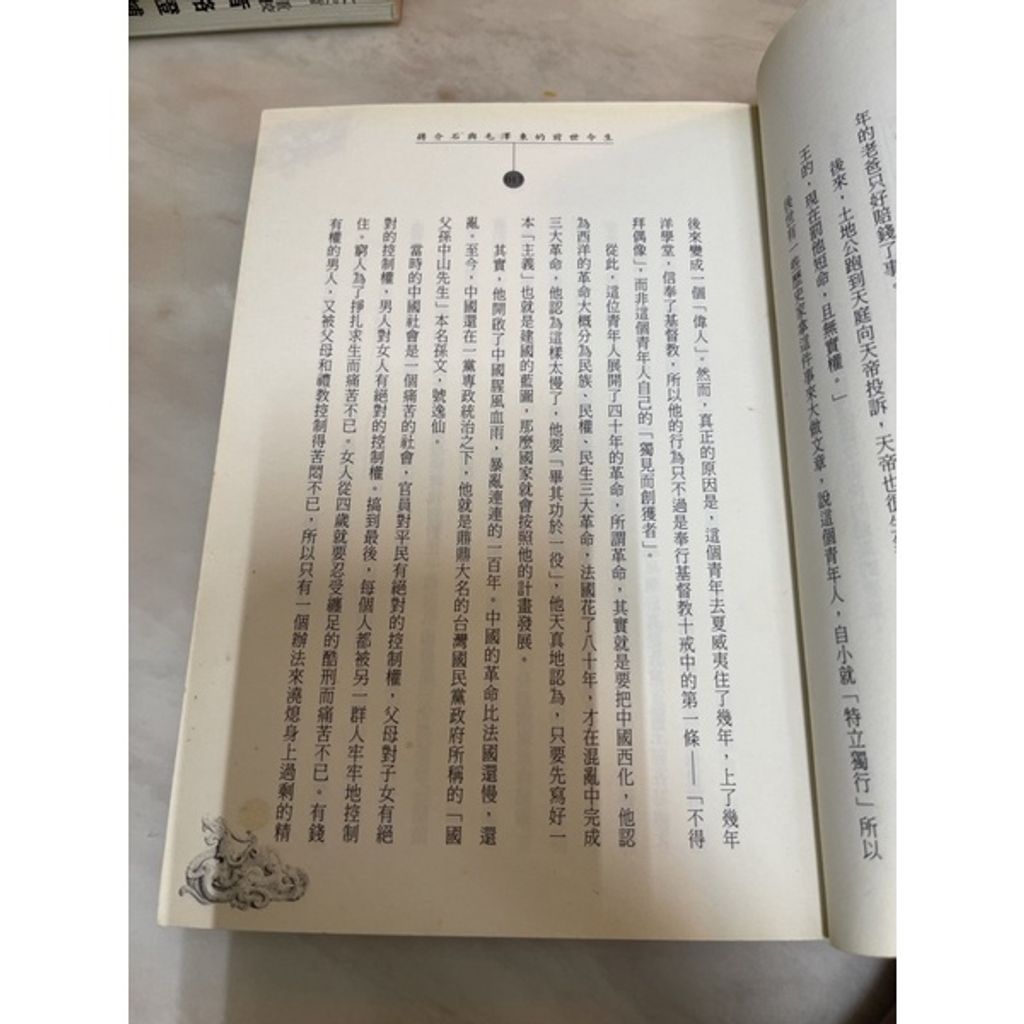 蔣介石與毛澤東的前世今生
年的老爸只好賠錢了事。
後來，土地公跑到天庭向天帝投訴，天帝也很生
王的，現在罰他短命，且無實權。」
後世有一些歷史家拿這件事來大做文章，說這個青年人，自小就「特立獨行」所以
後來變成一個「偉人」。然而，真正的原因是，這個青年去夏威夷住了幾年，上了幾年
洋學堂，信奉了基督教，所以他的行為只不過是奉行基督教十戒中的第一條——「不得
拜偶像」，而非這個青年人自己的「獨見而創獲者」。
從此，這位青年人展開了四十年的革命，所謂革命，其實就是要把中國西化，他認
為西洋的革命大概分為民族、民權、民生三大革命，法國花了八十年，才在混亂中完成
三大革命，他認為這樣太慢了，他要「畢其功於一役」，他天真地認為，只要先寫好一
本「主義」也就是建國的藍圖，那麼國家就會按照他的計畫發展。
其實，他開啟了中國腥風血雨，暴亂連連的一百年。中國的革命比法國還慢，還
亂。至今，中國還在一黨專政統治之下，他就是鼎鼎大名的台灣國民黨政府所稱的「國
父孫中山先生」本名孫文，號逸仙。
當時的中國社會是一個痛苦的社會，官員對平民有絕對的控制權，父母對子女有絕
對的控制權，男人對女人有絕對的控制權。搞到最後，每個人都被另一群人牢牢地控制
住。窮人為了掙扎求生而痛苦不已。女人從四歲就要忍受纏足的酷刑而痛苦不已。有錢
有權的男人，又被父母和禮教控制得苦悶不已，所以只有一個辦法來澆熄身上過剩的精